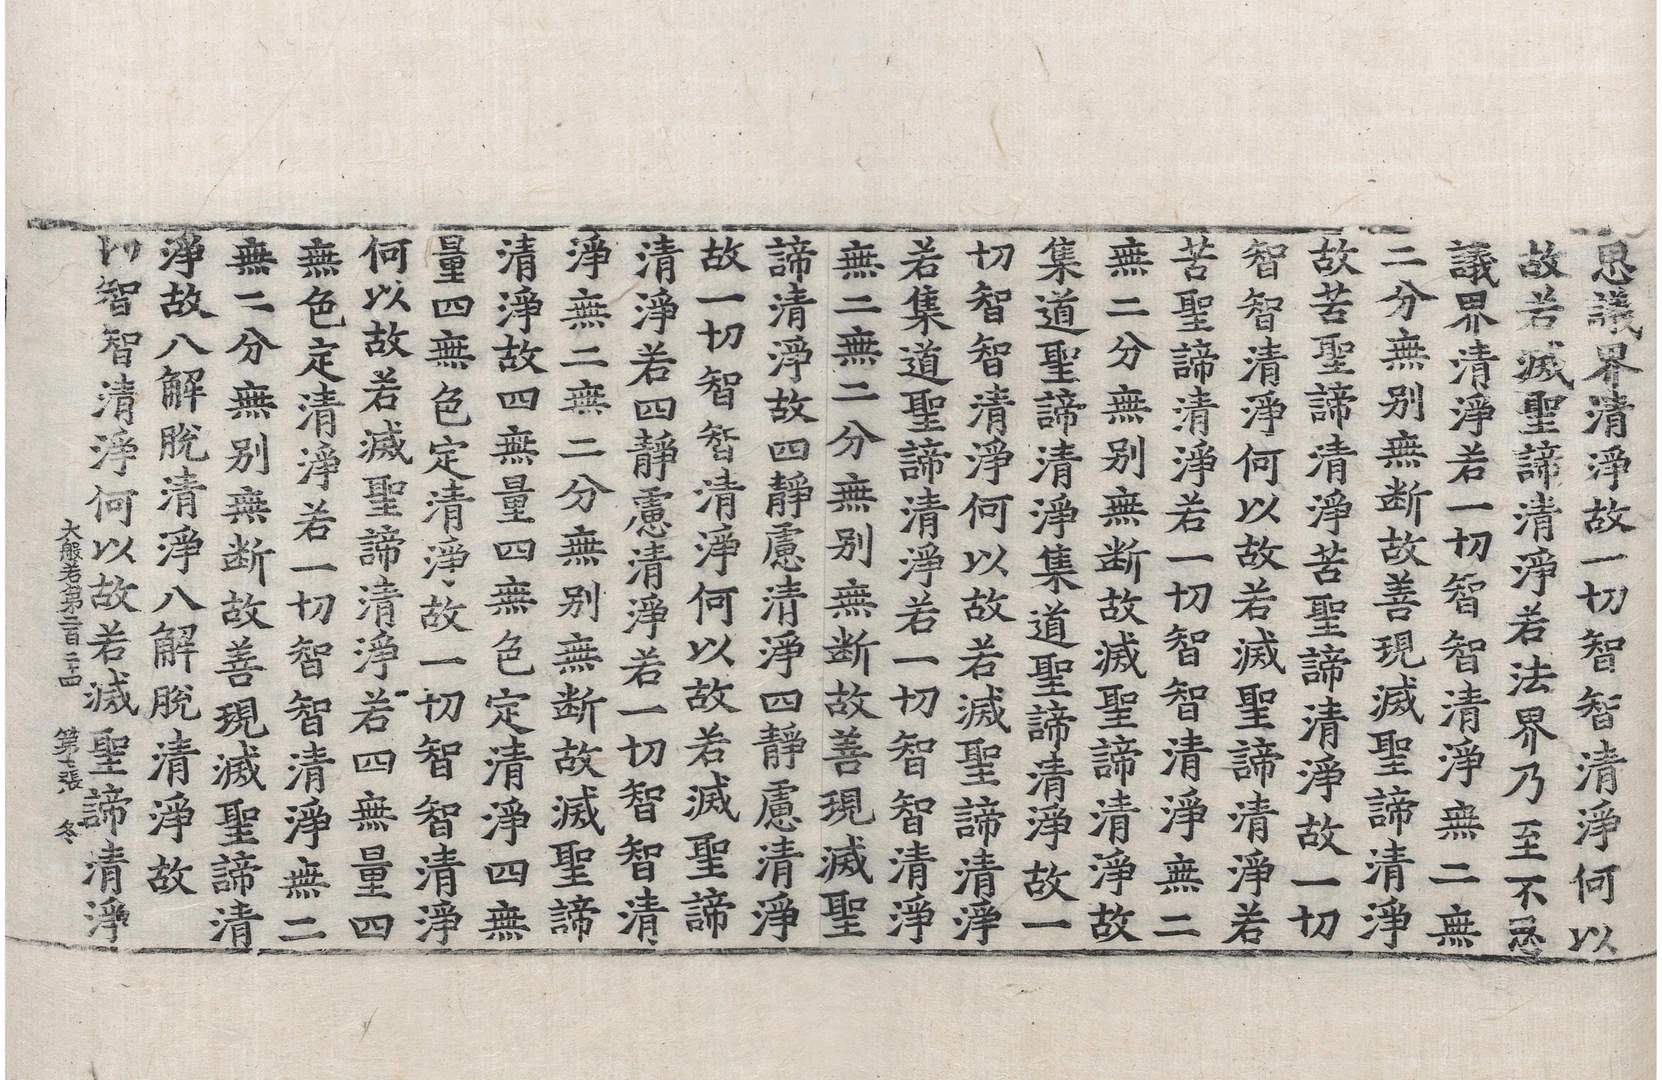 思議界清淨故一切智智清淨何以
故若滅聖諦清淨若法界乃至不思
議界清淨若一切智智清淨無二無
二分無別無断故善現滅聖諦清淨
故苦聖諦清淨苦聖諦清淨故一切
智智清淨何以故若滅聖諦清淨若
苦聖諦清淨若一切智智清淨無二
無二分無別無断故滅聖諦清淨故
集道聖諦清淨集道聖諦清淨故一
切智智清淨何以故若滅聖諦清淨
若集道聖諦清淨若一切智智清淨
無二無二分無別無断故善現滅聖
諦清淨故四靜慮清淨四靜慮清淨
故一切智智清淨何以故若滅聖諦
清淨若四靜慮清淨若一切智智清
淨無二無二分無別無断故滅聖諦
清淨故四無量四無色定清淨四無
量四無色定清淨故一切智智清淨
何以故若滅聖諦清淨若四無量四
無色定清淨若一切智智清淨無二
無二分無別無断故善現滅聖諦清
淨故八解脫清淨八解脫清淨故
切智智清淨何以故若滅聖諦清淨
大般若第二百二十四 第七張 冬